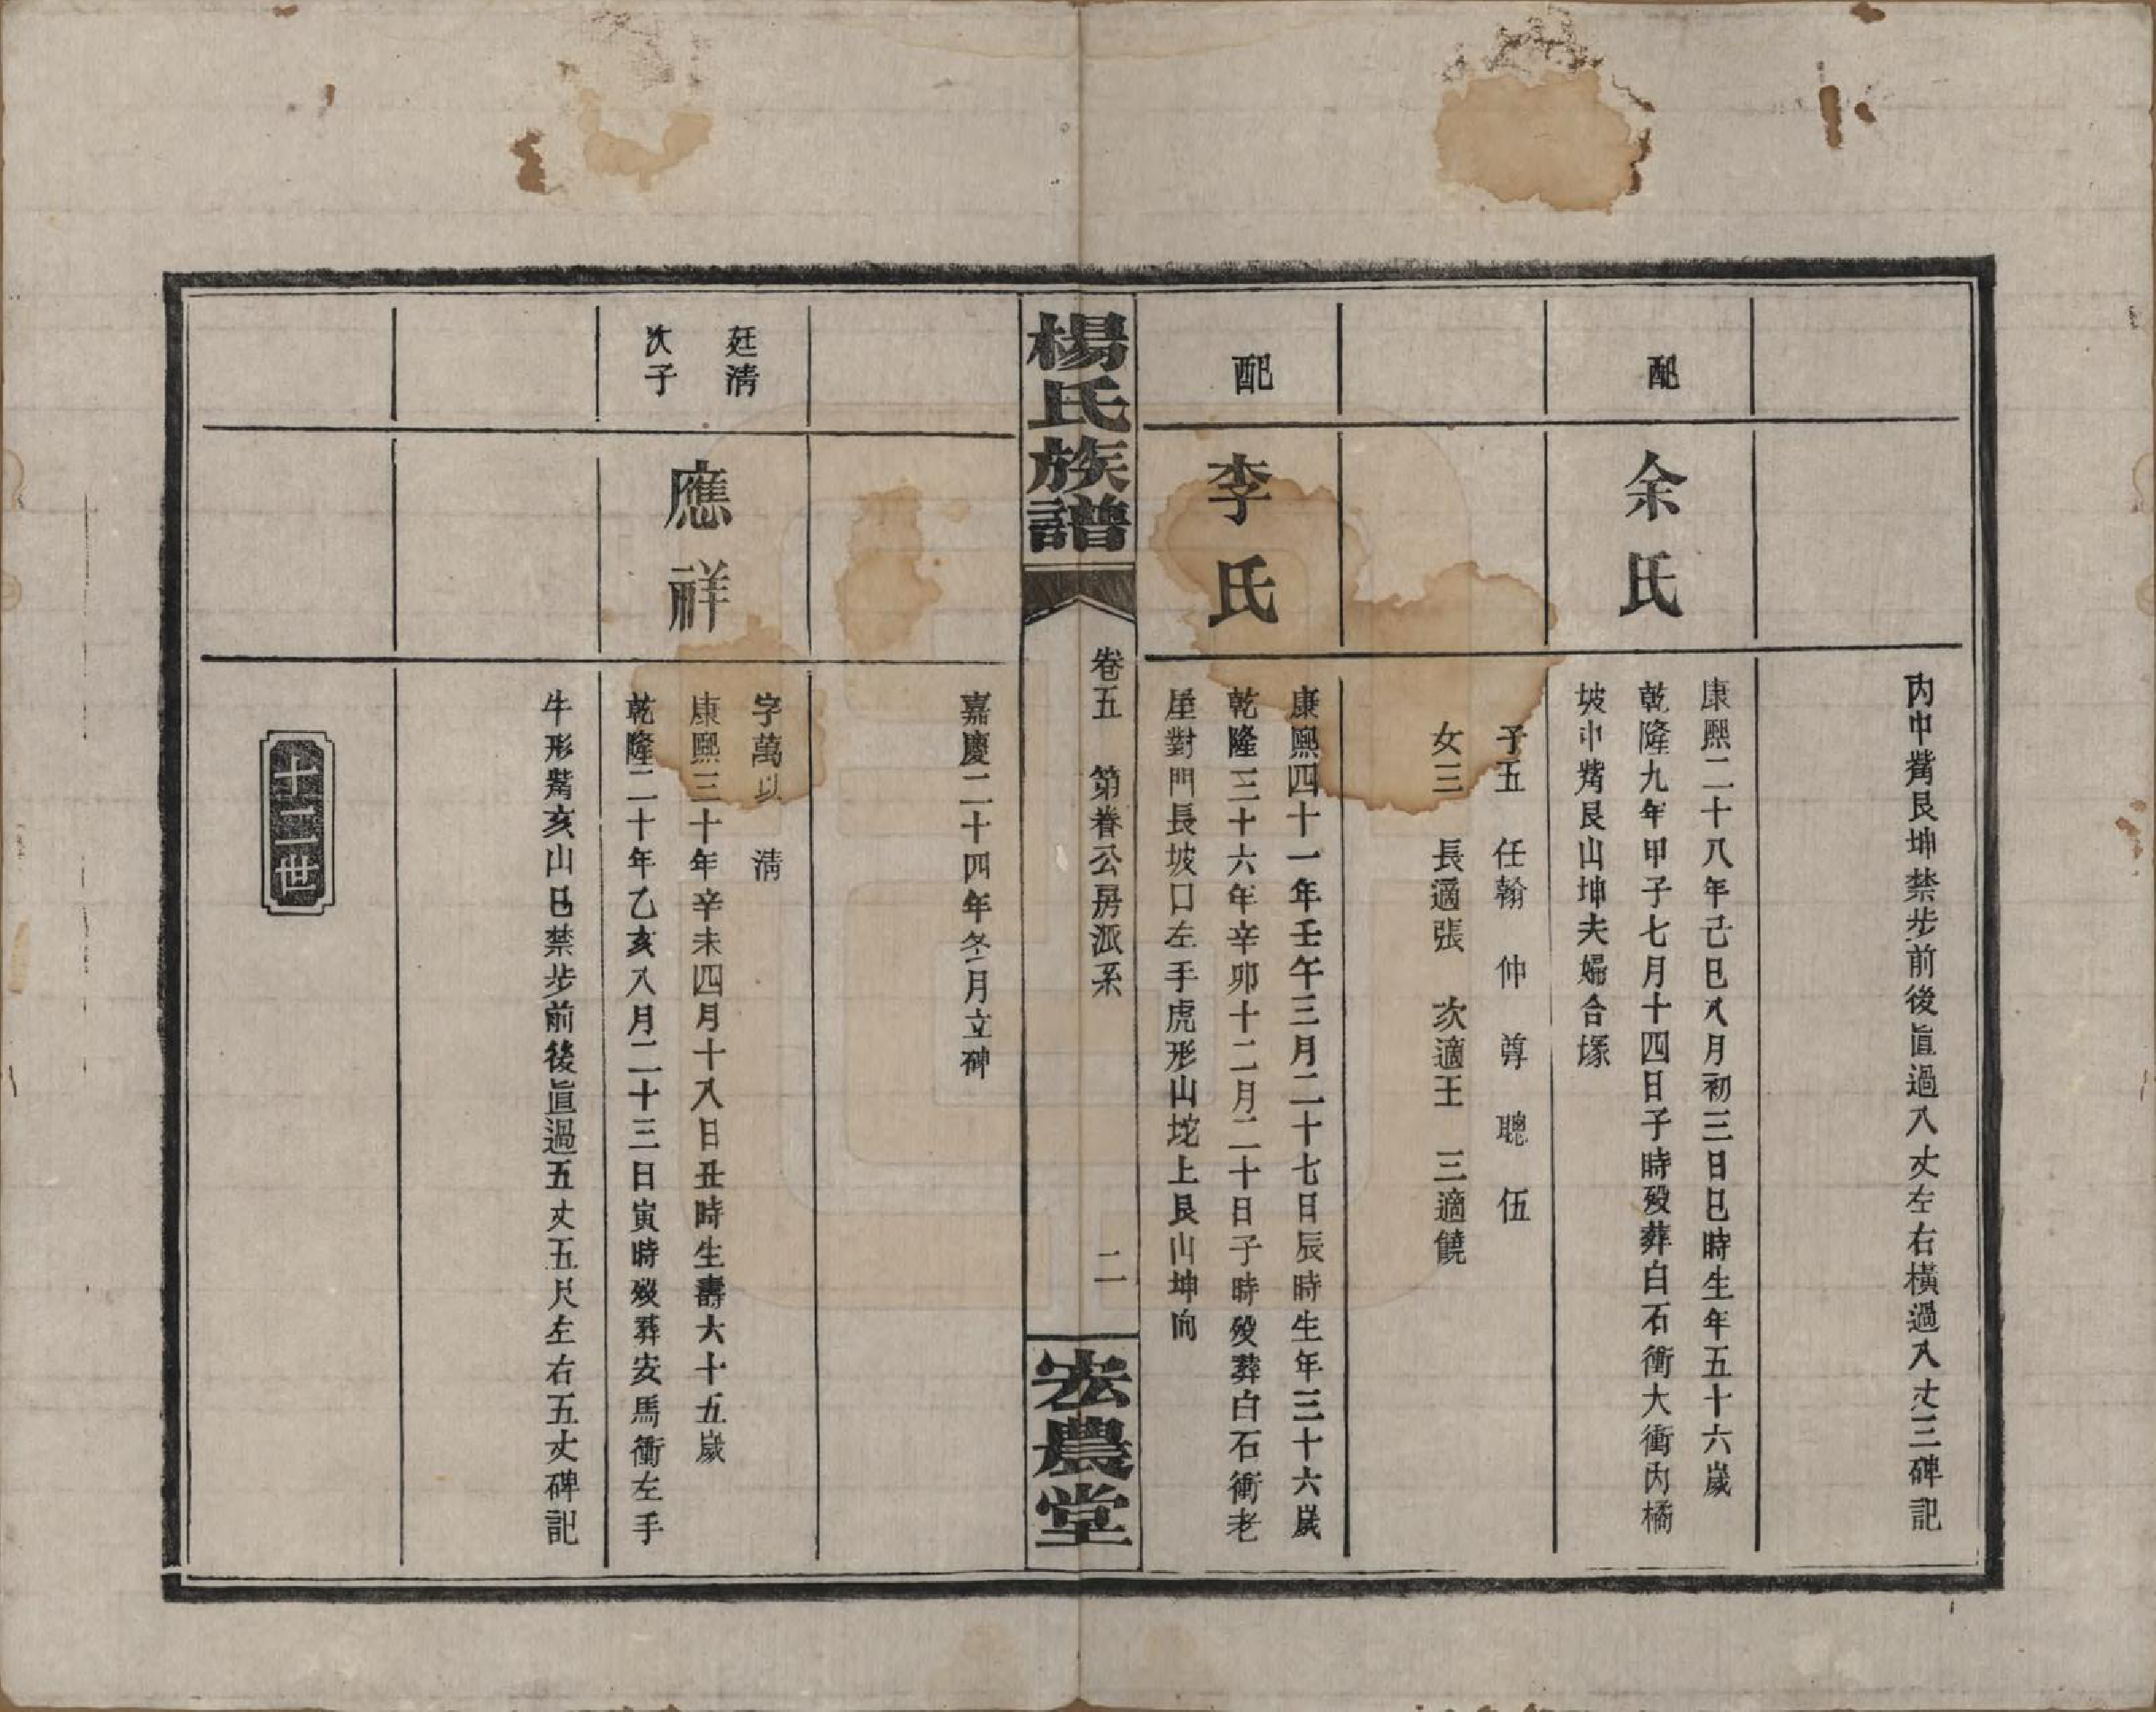 內中觜艮坤禁步前後直過八丈左右橫過八丈三碑記
配
余氏
康熙二十八年己巳八月初三日巳時生年五十六歲
乾隆九年甲子七月十四日子時歿葬白石衝大衝內橘
坡中觜艮山坤夫婦合塚
子五 任翰 仲 尊 聰 伍
女三 長適張 次適王 三適饒
配
李氏
康熙四十一年壬午三月二十七日辰時生年三十六歲
乾隆三十六年辛卯十二月二十日子時歿葬白石衝老
屋對門長坡口左手虎形山坨上艮山坤向
楊氏族譜
卷五 第眷公房派系
二
宏農堂
嘉慶二十四年冬月立碑
廷淸
次子
應祥
字萬以 淸
康熙三十年辛未四月十八日丑時生壽六十五歲
乾隆二十年乙亥八月二十三日寅時歿葬安馬衝左手
牛形觜亥山巳禁步前後直過五丈五尺左右五丈碑記
十三世